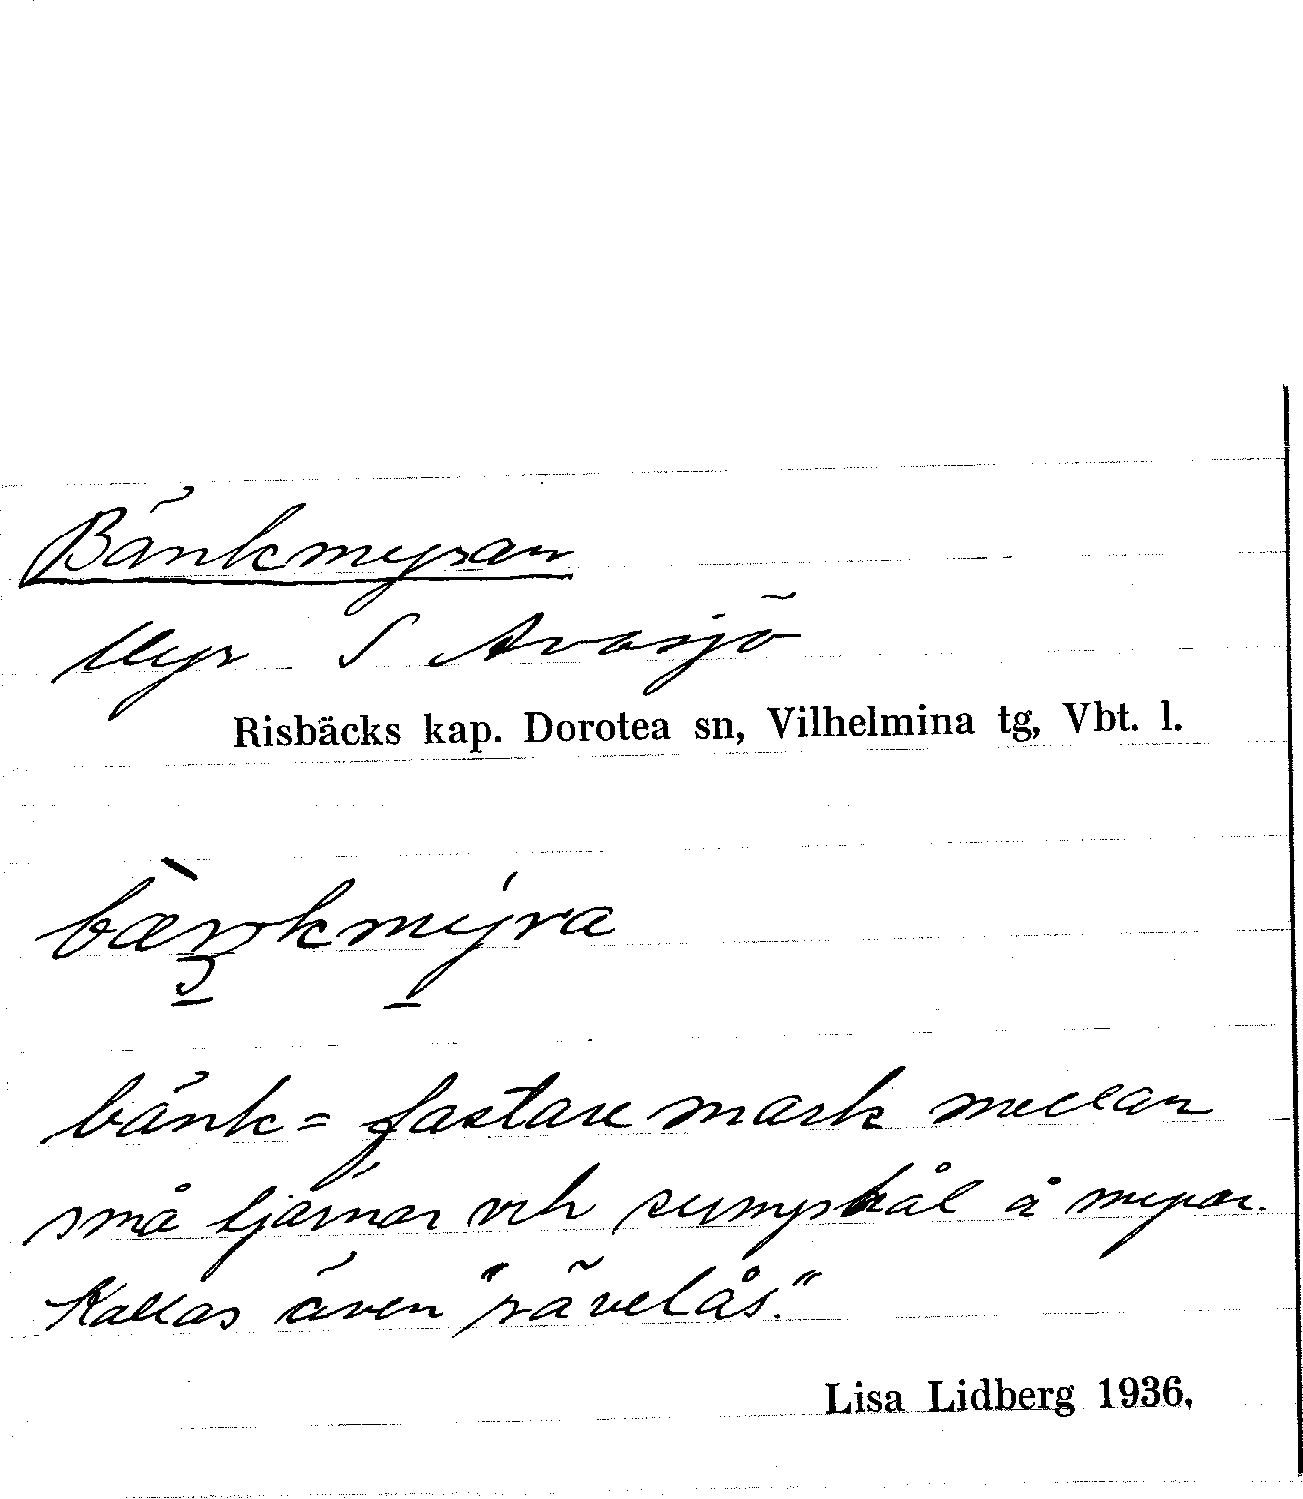 Bänkmyran
Myr S Avasjö
Risbäcks kap. Dorotea sn, Vilhelmina tg, Vbt. l.
bænkmyra
bänk = fastare mark mellan
små tjärnar och sumphål å myrar.
Kallas även "rävelås."
Lisa Lidberg 1936.